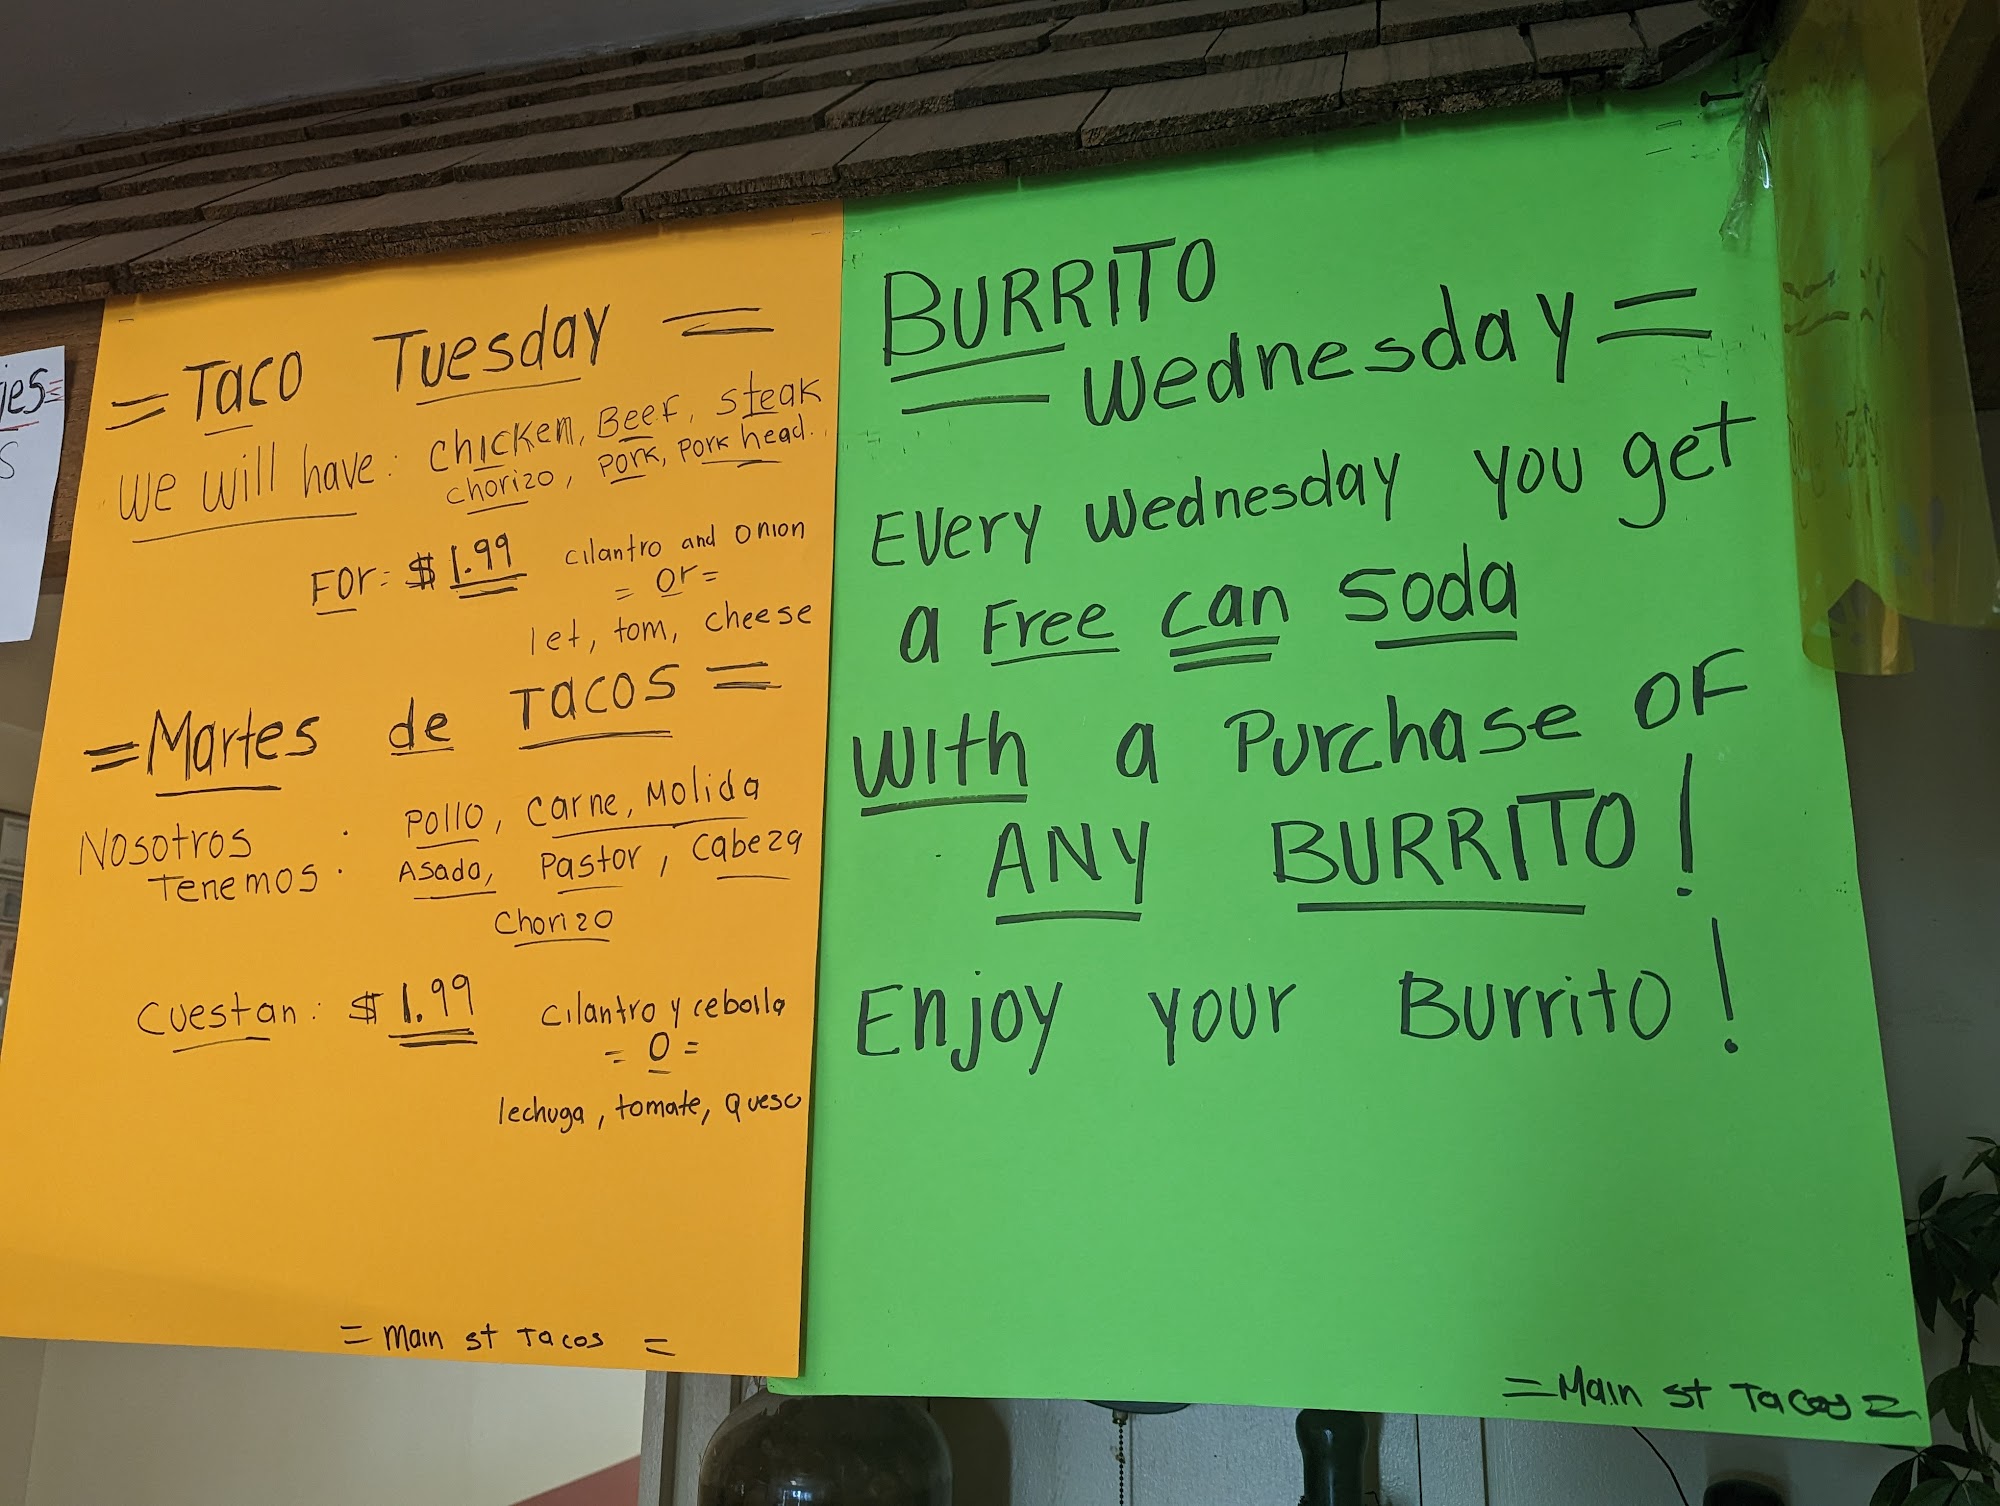 = Taco Tuesday =
We will have: chicken, Beef, steak
chorizo, pork, pork head.
For: $1.99 cilantro and onion
= or =
let, tom, cheese
= Martes de Tacos =
Nosotros Tenemos: Pollo, carne, Molida
Asado, Pastor, Cabeza
Chorizo
Cuestan: $1.99 cilantro y cebolla
= O =
lechuga, tomate, queso
= Main st Tacos =
BURRITO
= Wednesday =
Every Wednesday you get
a Free can soda
With a Purchase OF
ANY BURRITO!
Enjoy your Burrito!
= Main st Tacos =